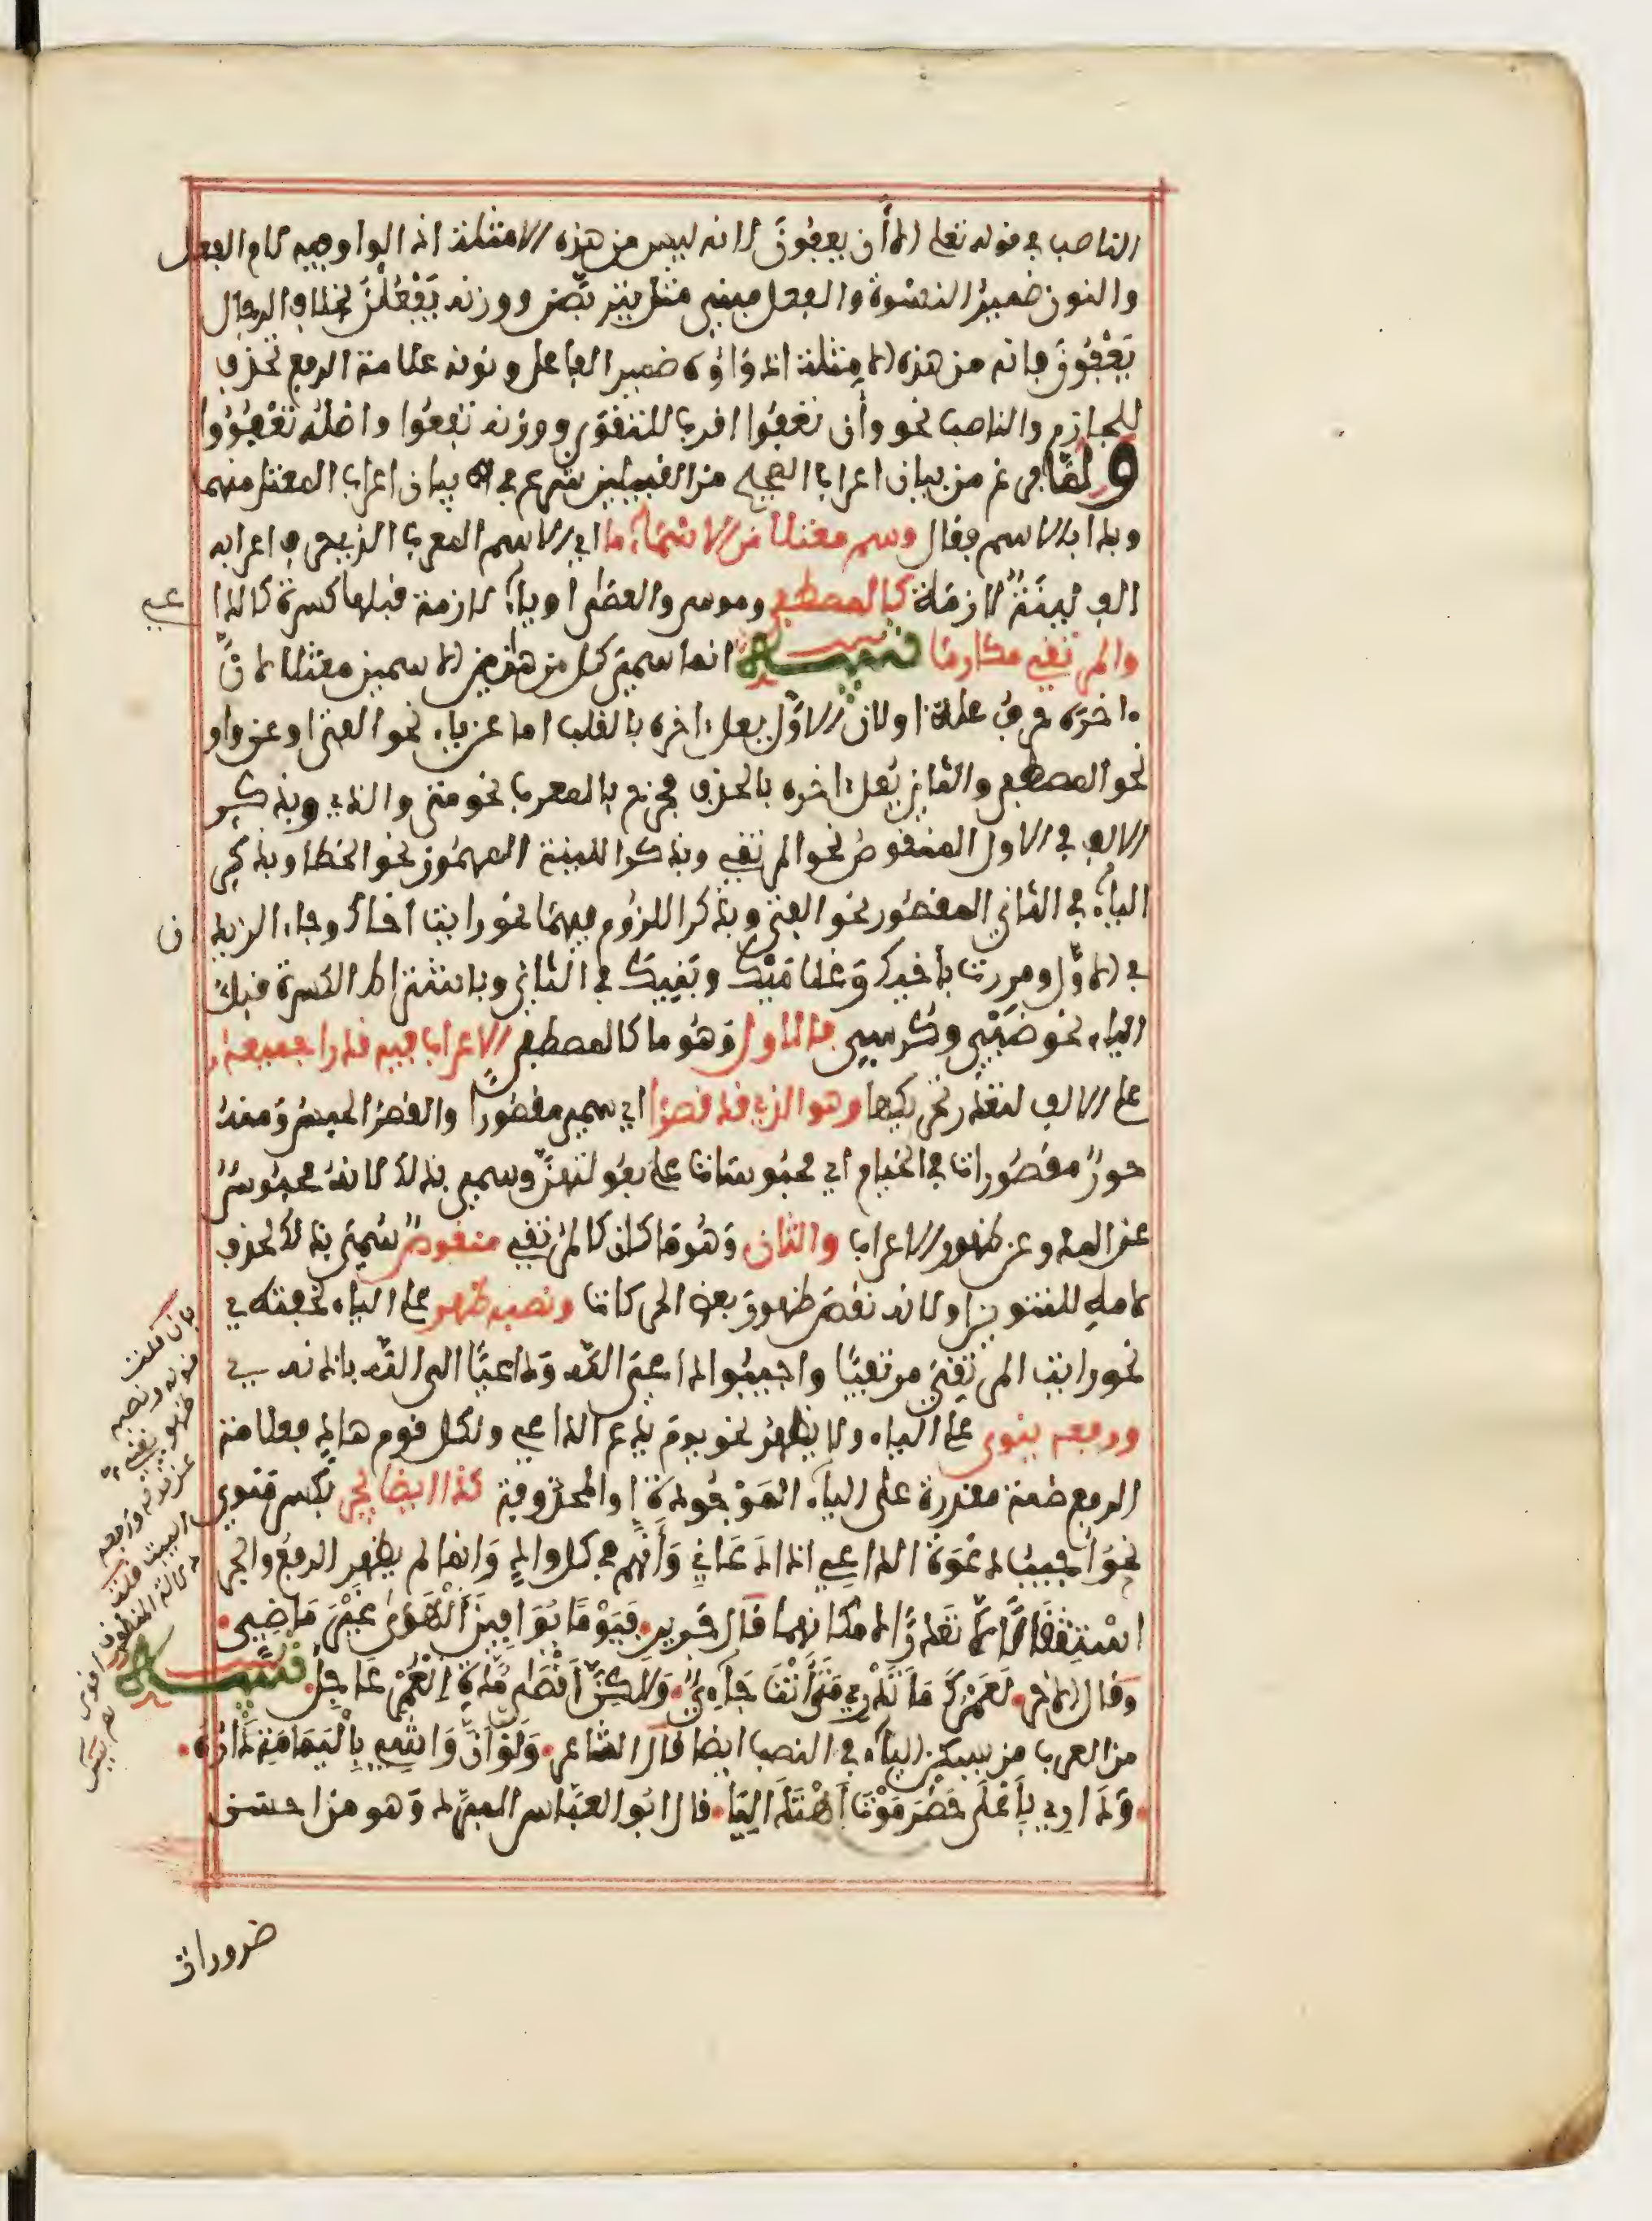 الناصب في قوله تعلى إلا أن يعفون لانه ليس من هذه الامثلة اذ الواو فيه لام الفعل
والنون ضمير النسوة والفعل مبني مثل يتربصن ووزنه يَفْعُلْنَ بخلاف الرجال
يَعْفُونَ فانه من هذه الامثلة اذ واوه ضمير الفاعل ونونه علامة الرفع تحذف
للجازم والناصب نحو وأن تعفوا اقرب للتقوى ووزنه تفعوا واصله تَعْفُوُوا
ولمّا فرغ من بيان اعراب الصحيح من القبيلين شرع في بيان اعراب المعتل منهما
وبدا بالاسم فقال وسم معتلا من الاسماء ما اي الاسم المعرب الذي حرف اعرابه
الف لينة لازمة كالمصطفى وموسى والعصى او ياء لازمة قبلها كسرة كالدا
عي
والمرتقي مكارما تنبيه انما سمي كل من هذين الاسمين معتلا لان
ءاخره حرف علة او لان الاول يعل ءاخره بالقلب اما عن ياء نحو الفتى او عن واو
نحو المصطفى والثاني يعل ءاخره بالحذف فخرج بالمعرب نحو متى والذي وبذكر
الالف في الاول المنقوص نحو المرتقي وبذكر اللينة المهموز نحو الخطا وبذكر
الياء في الثاني المقصور نحو الفتى وبذكر اللزوم فيهما نحو رايت اخاك وجاء الزيد
ان
في الاول ومررت بأخيك وغلاميك وبنيك في الثاني وباشتراط الكسرة قبل
الياء نحو ضبي وكرسي فالاول وهو ما كالمصطفى الاعراب فيه قدرا جميعه
على الالف لتعذر تحريكها وهو الذي قد قصرا اي سمي مقصورا والقصر الحبس ومنه
حور مقصورات في الخيام اي محبوسات على بعولتهن وسمي بذلك لانه محبوس
عن المد وعن ظهور الاعراب والثان وهو ما كان كالمرتقي منقوص سمي بذلك لحذف
لامه للتنوين او لانه نقص ظهور بعض الحركات ونصبه ظهر على الياء لخفته في
نحو رايت المرتقي مرتقيا واجيبوا داعي الله وداعيا الى الله باذنه
ورفعه ينوى على الياء ولا يظهر نحو يوم يدع الداعي ولكل قوم هاد فعلامة
الرفع ضمة مقدرة على الياء الموجودة او المحذوفة كذا ايضا يجر بكسر منوي
نحو أجيب دعوة الداعي اذا دعاني وأنهم في كل واد وانما لم يظهر الرفع والجر
استثقالا لا تعذرا لامكانهما قال جرير فيوما يوافين الهوى غير ماضي
وقال الاخر لعمرك ما تدري متى أنت جاءي ولكن اقصى مدة العمر عاجل تنبيه
من العرب من يسكن الياء في النصب ايضا قال الشاعر ولو ان واشي باليمامة داره
وداري باعلى حضرموت اهتدى ليا قال ابو العباس المبرد وهو من احسن
ضرورات